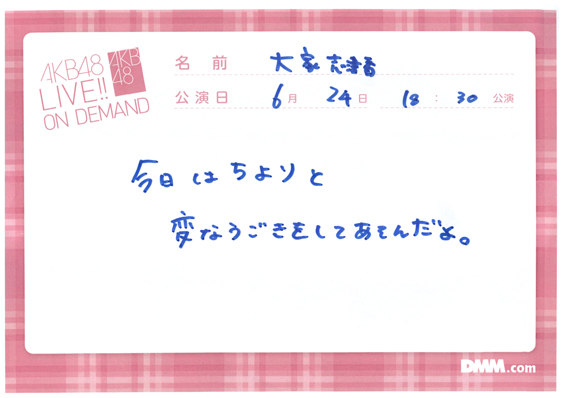 AKB48
LIVE!!
ON DEMAND
AKB
48
名前 大家志津香
公演日 6月 24日 18:30 公演
今日はちょりと
変なうごきをしてあそんだよ。
DMM.com